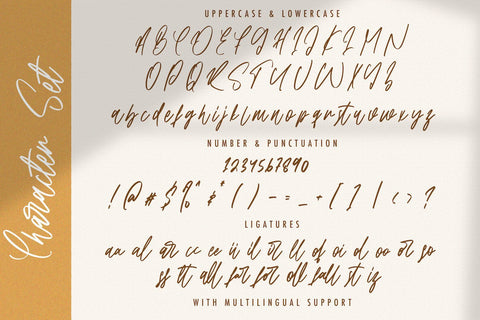 Character Set
UPPERCASE & LOWERCASE
A B C D E F G H I J K L M N
O P Q R S T U V W X Y Z
a b c d e f g h i j k l m n o p q r s t u v w x y z
NUMBER & PUNCTUATION
1 2 3 4 5 6 7 8 9 0
! @ # $ % ^ & * ( ) - = _ + [ ] / < > ?
LIGATURES
aa al ar cc ee ii il ir ll of oi ol oo or so
ss tt all for for oll fall st is
WITH MULTILINGUAL SUPPORT